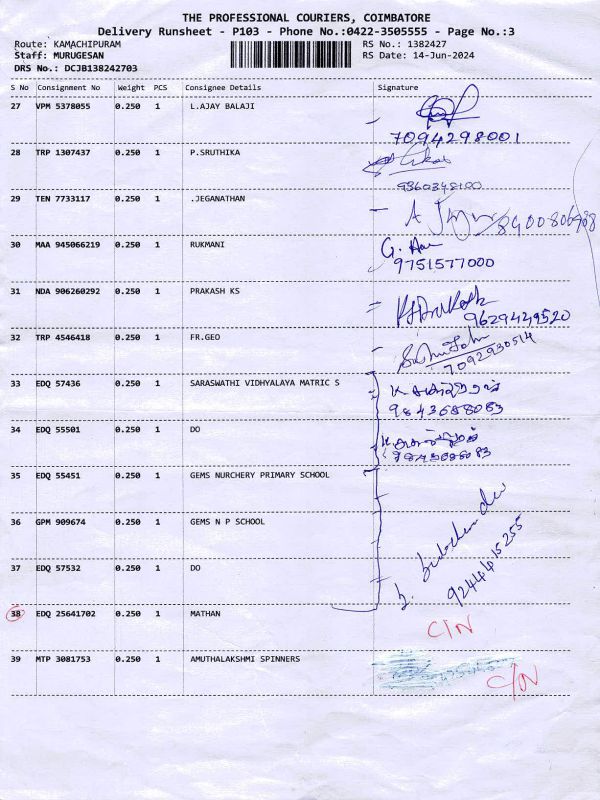 THE PROFESSIONAL COURIERS, COIMBATORE
Delivery Runsheet - P103 - Phone No.:0422-3505555 - Page No.:3
Route: KAMACHIPURAM RS No.: 1382427
Staff: MURUGESAN RS Date: 14-Jun-2024
DRS No.: DCJB138242703
S No Consignment No Weight PCS Consignee Details Signature
27 VPM 5378055 0.250 1 L.AJAY BALAJI
7094298001
28 TRP 1307437 0.250 1 P.SRUTHIKA
9360348100
29 TEN 7733117 0.250 1 .JEGANATHAN
30 MAA 945066219 0.250 1 RUKMANI
9751577000
31 NDA 906260292 0.250 1 PRAKASH KS
9629449520
32 TRP 4546418 0.250 1 FR.GEO
7092930514
33 EDQ 57436 0.250 1 SARASWATHI VIDHYALAYA MATRIC S
9843688083
34 EDQ 55501 0.250 1 DO
35 EDQ 55451 0.250 1 GEMS NURCHERY PRIMARY SCHOOL
36 GPM 909674 0.250 1 GEMS N P SCHOOL
9244415255
37 EDQ 57532 0.250 1 DO
38 EDQ 25641702 0.250 1 MATHAN
C/N
39 MTP 3081753 0.250 1 AMUTHALAKSHMI SPINNERS
C/N